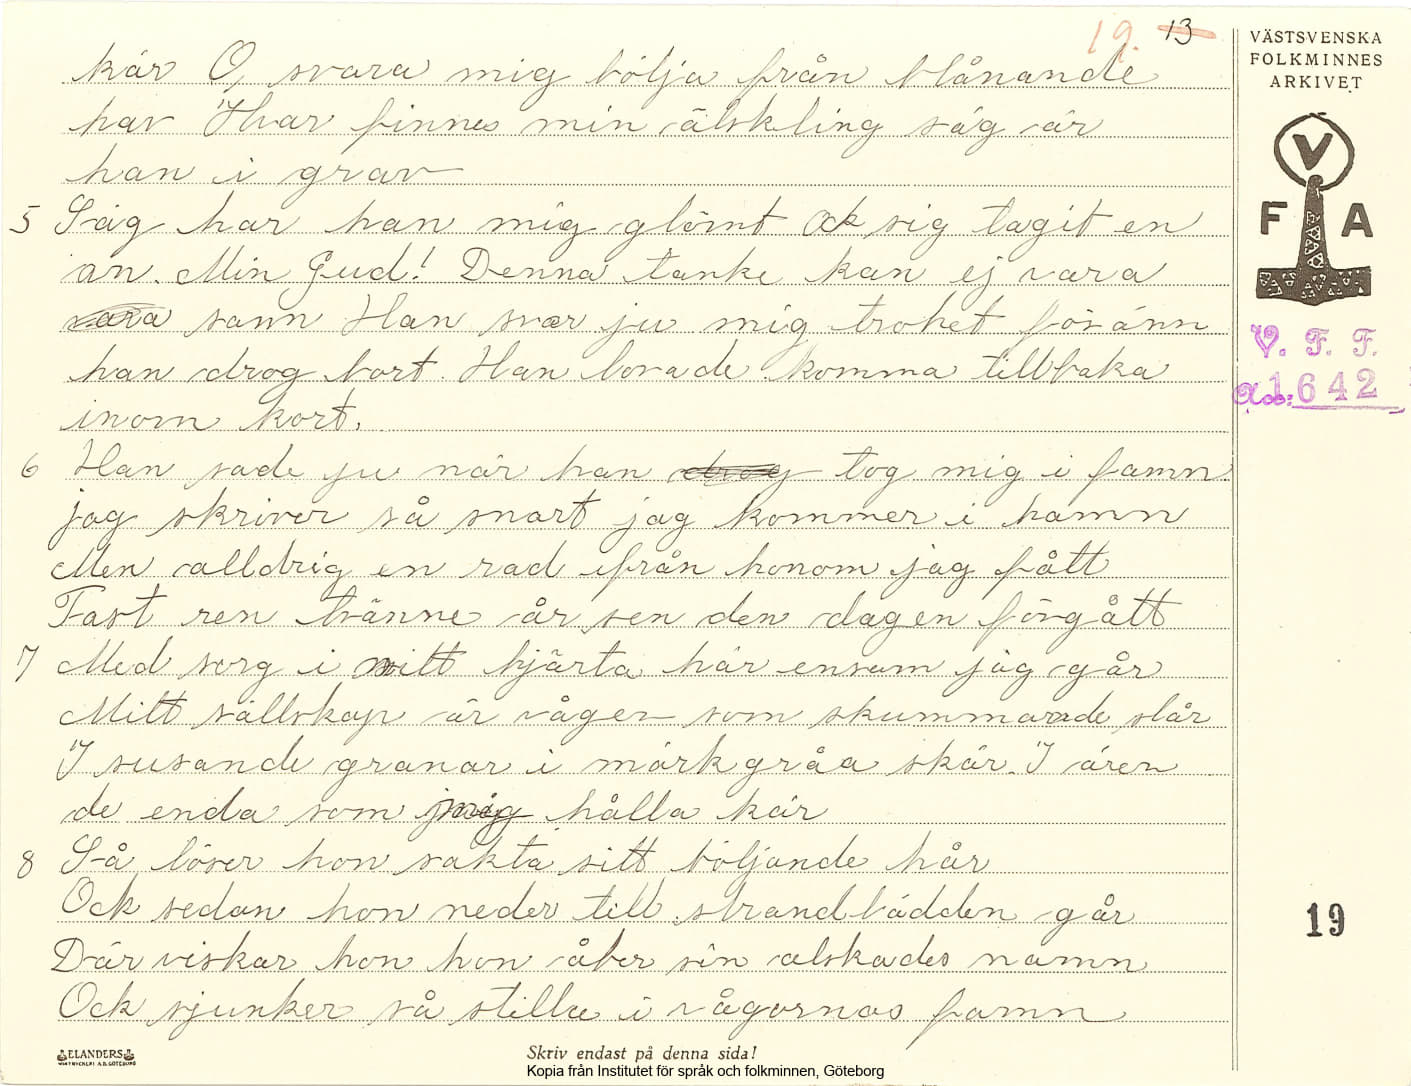 19. 13
VÄSTSVENSKA
FOLKMINNES
ARKIVET
kär O, svara mig bölja från blånande
hav Hvar finnes min älskling säg är
han i grav
5 Säg har han mig glömt Ock sig tagit en
an. Min Gud! Denna tanke kan ej vara
vara sann Han svor ju mig trohet föränn
han drog bort. Han lovade komma tillbaka
inom kort.
6 Han sade ju när han drog tog mig i famn.
jag skriver så snart jag kommer i hamn
Men alldrig en rad ifrån honom jag fått
Fast ren tvänne år sen den dagen förgått
7 Med sorg i mitt hjärta här ensam jag går
Mitt sällskap är vågen som skummande slår
I susande granar i mörkgråa skär. I ären
de enda som mig hålla kär
8 Så löser hon sakta sitt böljande hår
Ock sedan hon neder till strandbädden går
Där viskar hon hon åter sin älskades namn
Ock sjunker så stilla i vågornas famn
V
F A
V. F. F.
Acc: 1642
19
ELANDERS
Skriv endast på denna sida!
Kopia från Institutet för språk och folkminnen, Göteborg